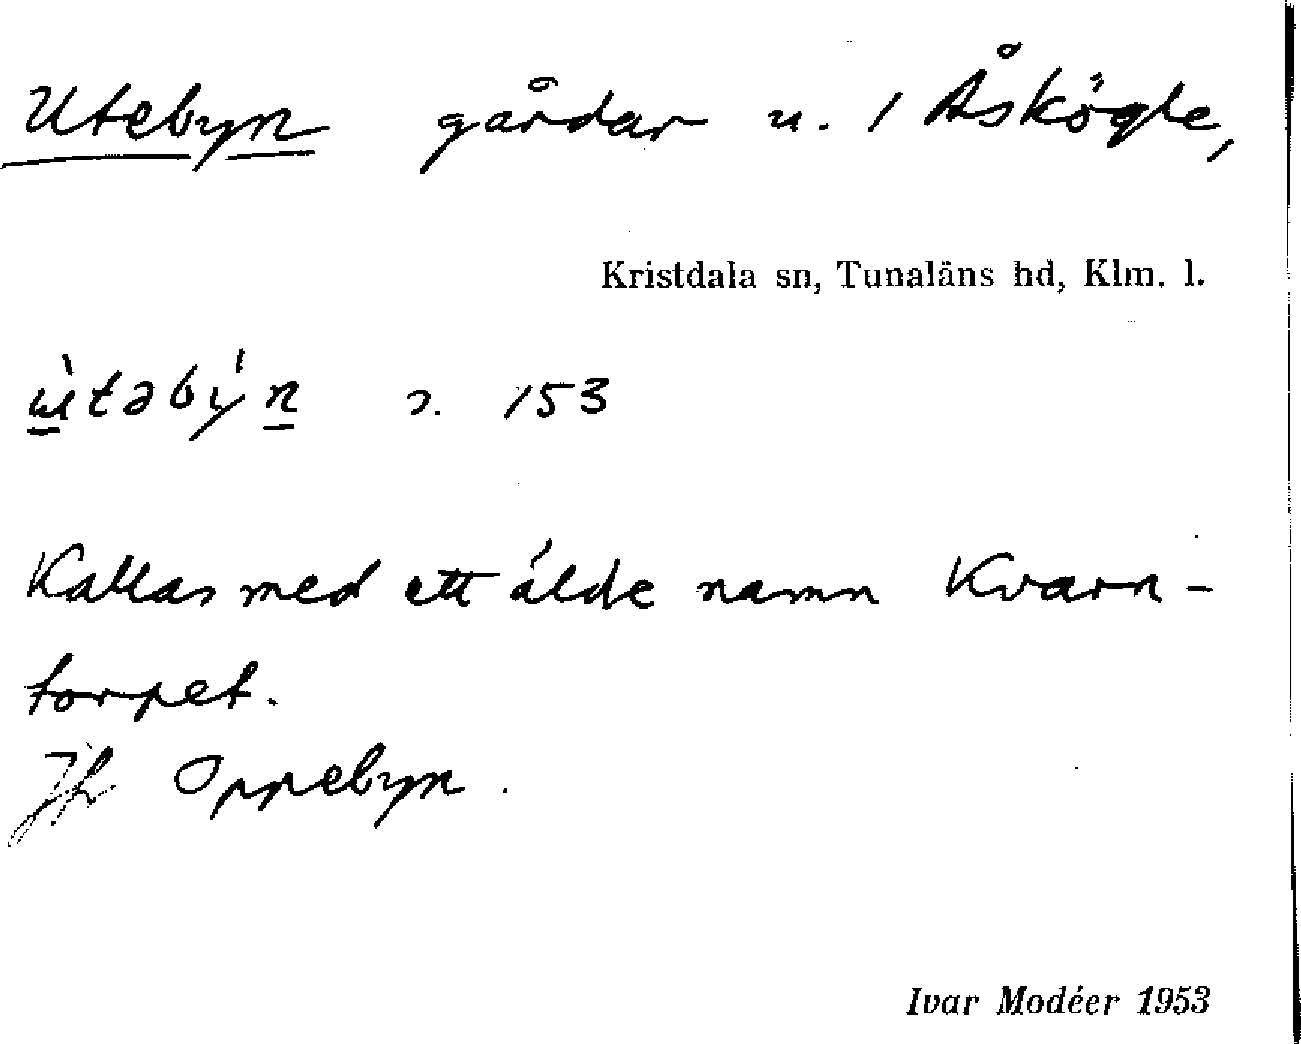 Utebyn gårdar u. 1 Åskögle,
Kristdala sn, Tunaläns hd, Klm. l.
ùtəbýn s. 153
Kallas med ett älde namn Kvarn-
torpet.
Jfr Oppebyn.
Ivar Modéer 1953